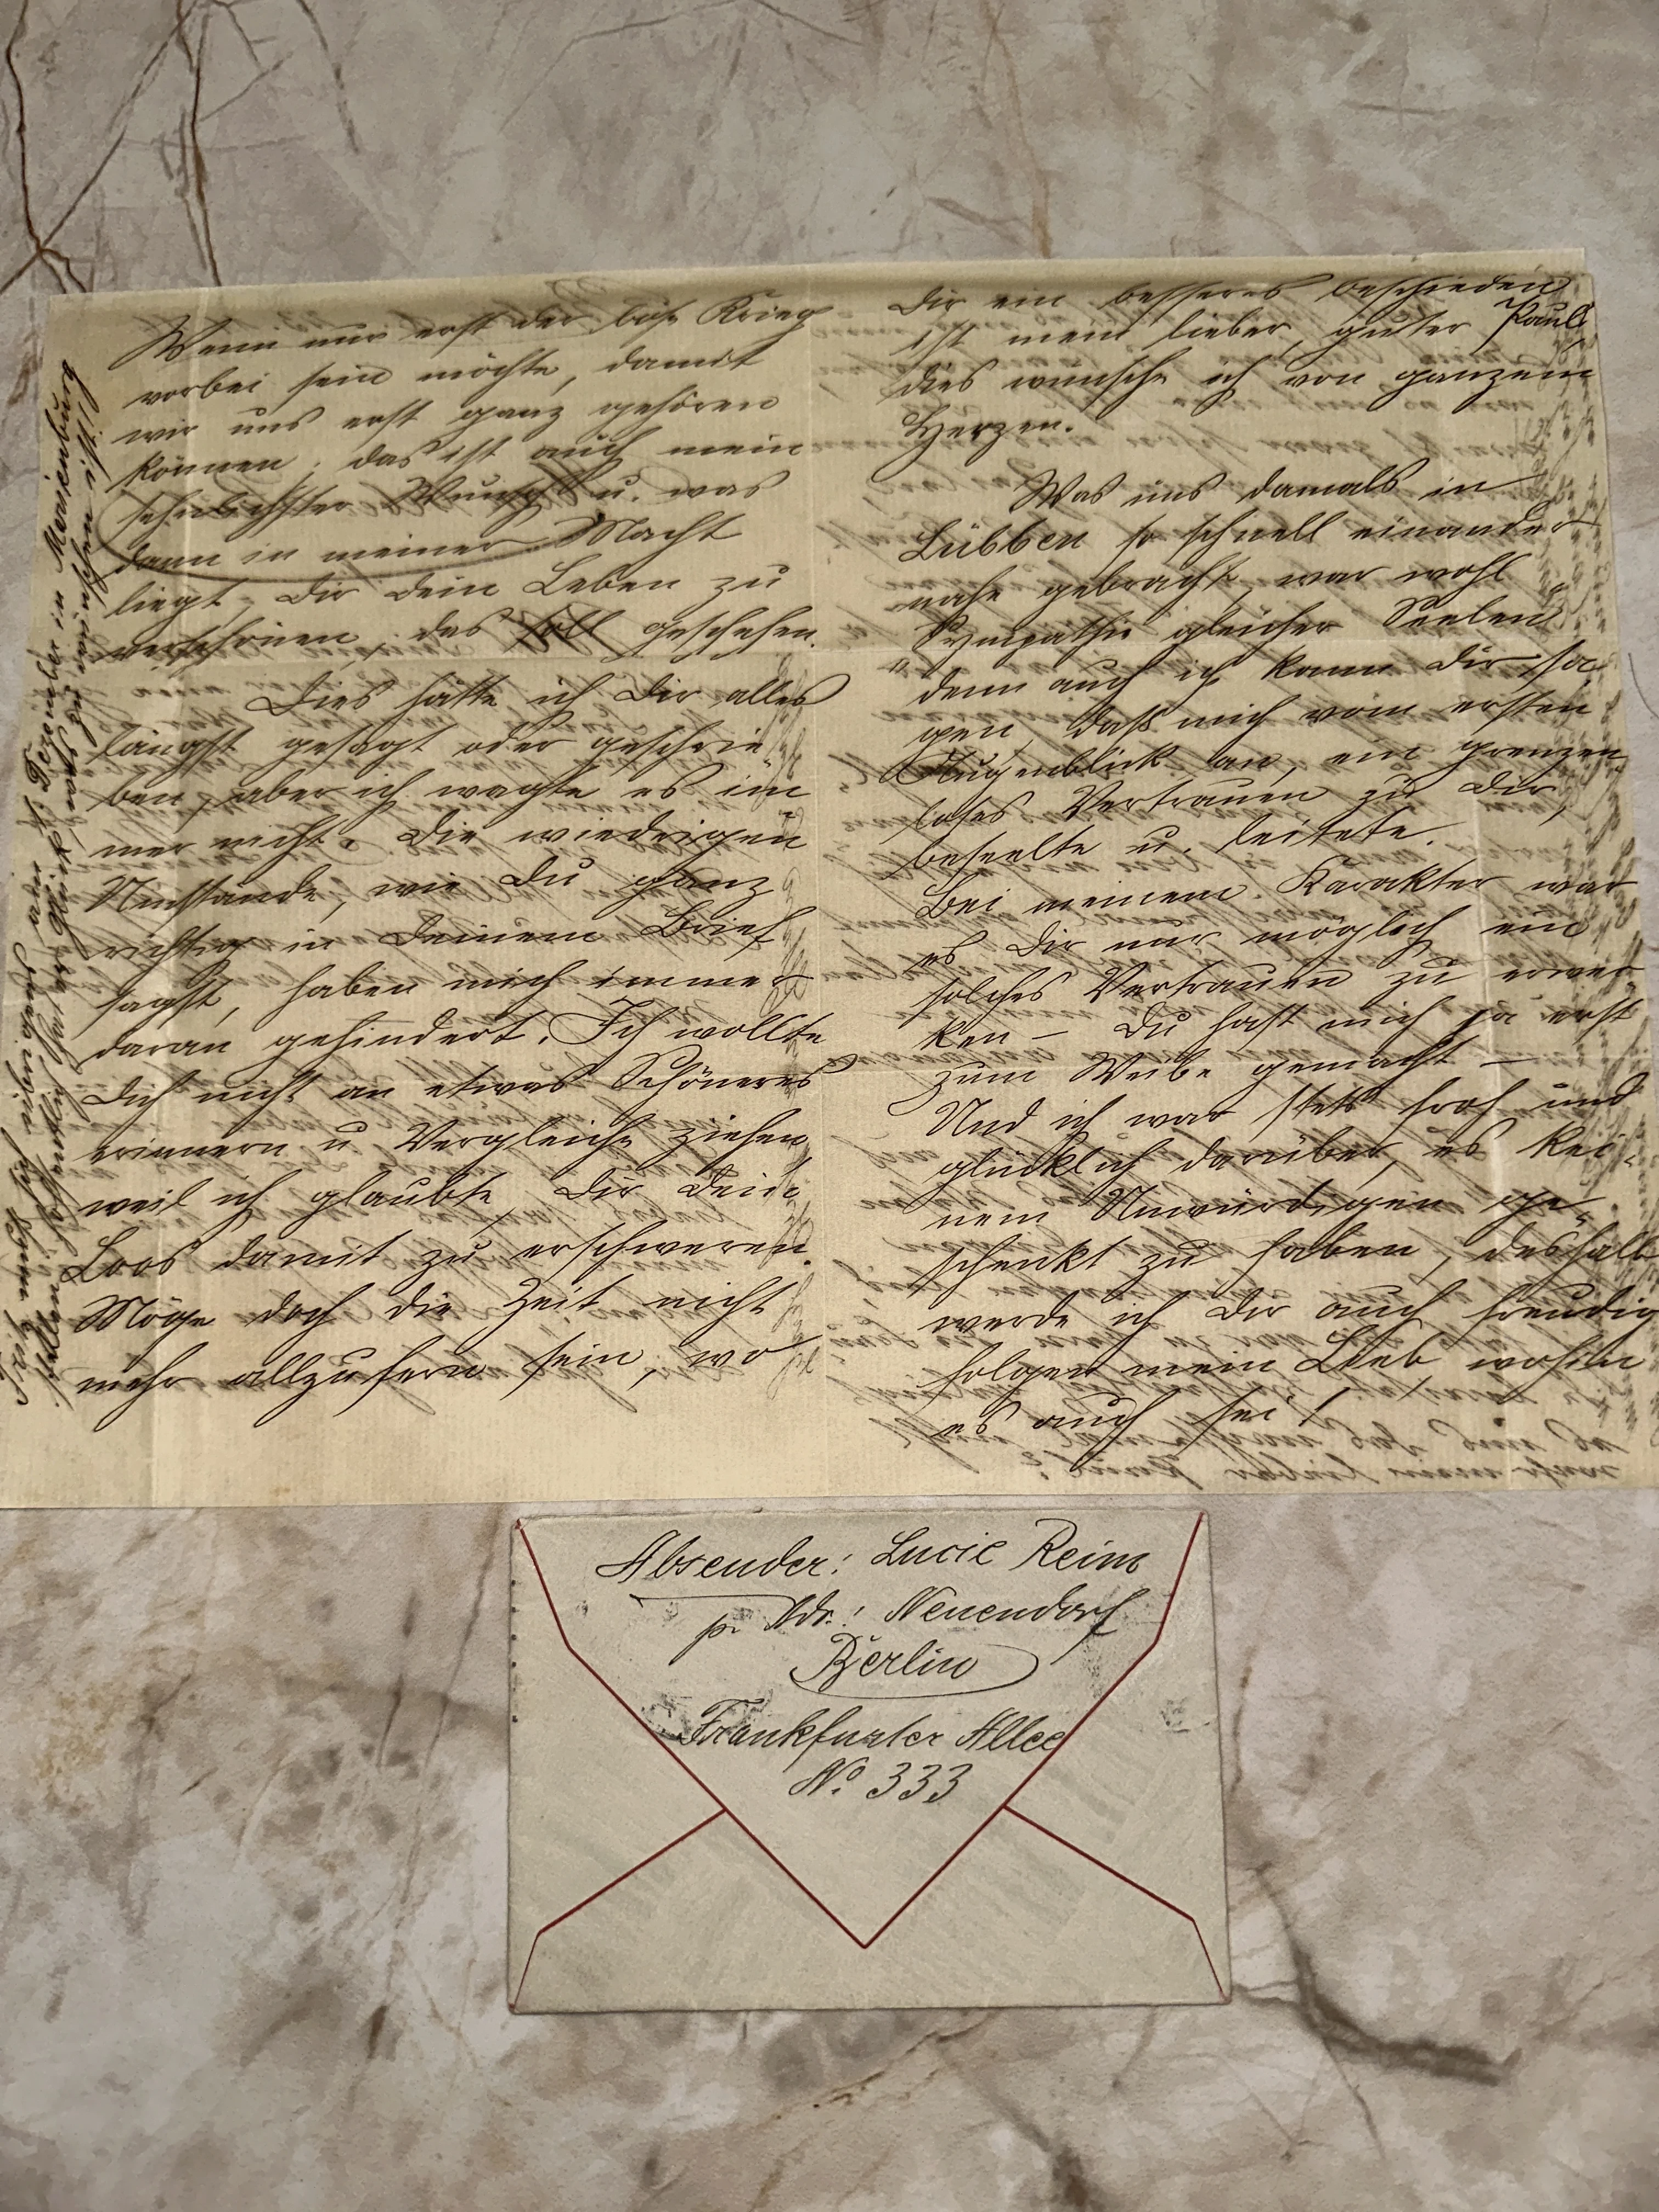 Wenn nur erst der böse Krieg
vorbei sein möchte, damit
wir uns erst ganz gehören
können; das ist auch mein
sehnlichster Wunsch u. was
dann in meiner Macht
liegt, Dir dein Leben zu
verschönen, das soll geschehen.
Dies hätte ich Dir alles
längst gesagt oder geschrie
ben, aber ich wagte es im
mer nicht. Die wiedrigen
Umstände, wie Du ganz
richtig in Deinem Brief
sagst, haben mich immer
daran gehindert. Ich wollte
Dich nicht an etwas Schöneres
erinnern u. Vergleiche ziehen,
weil ich glaubte, Dir Dein
Loos damit zu erschweren.
Möge doch die Zeit nicht
mehr allzufern sein, wo
Dir ein besseres beschieden
ist mein lieber, guter Paul,
dies wünsche ich von ganzem
Herzen.
Was uns damals in
Lübben so schnell einander
nahe gebracht, war wohl
Sympathie gleicher Seelen
denn auch ich kann Dir sa
gen, daß mich vom ersten
Augenblick an, ein grenzen
loses Vertrauen zu Dir,
beseelte u. leitete.
Bei meinem Karakter war
es Dir nur möglich ein
solches Vertrauen zu erwec
ken – Du hast mich ja erst
zum Weibe gemacht –
Und ich war stets froh und
glücklich darüber, es kei
nem Unwürdigen ge
schenkt zu haben, deshalb
werde ich Dir auch freudig
folgen mein Lieb, wohin
es auch sei!
muß ich
1. Dezember in Marienburg
hoffentlich hat er Glück, was zu wünschen ist!
Absender: Lucie Reim
p. Adr.: Neuendorf
Berlin
Frankfurter Allee
No. 333